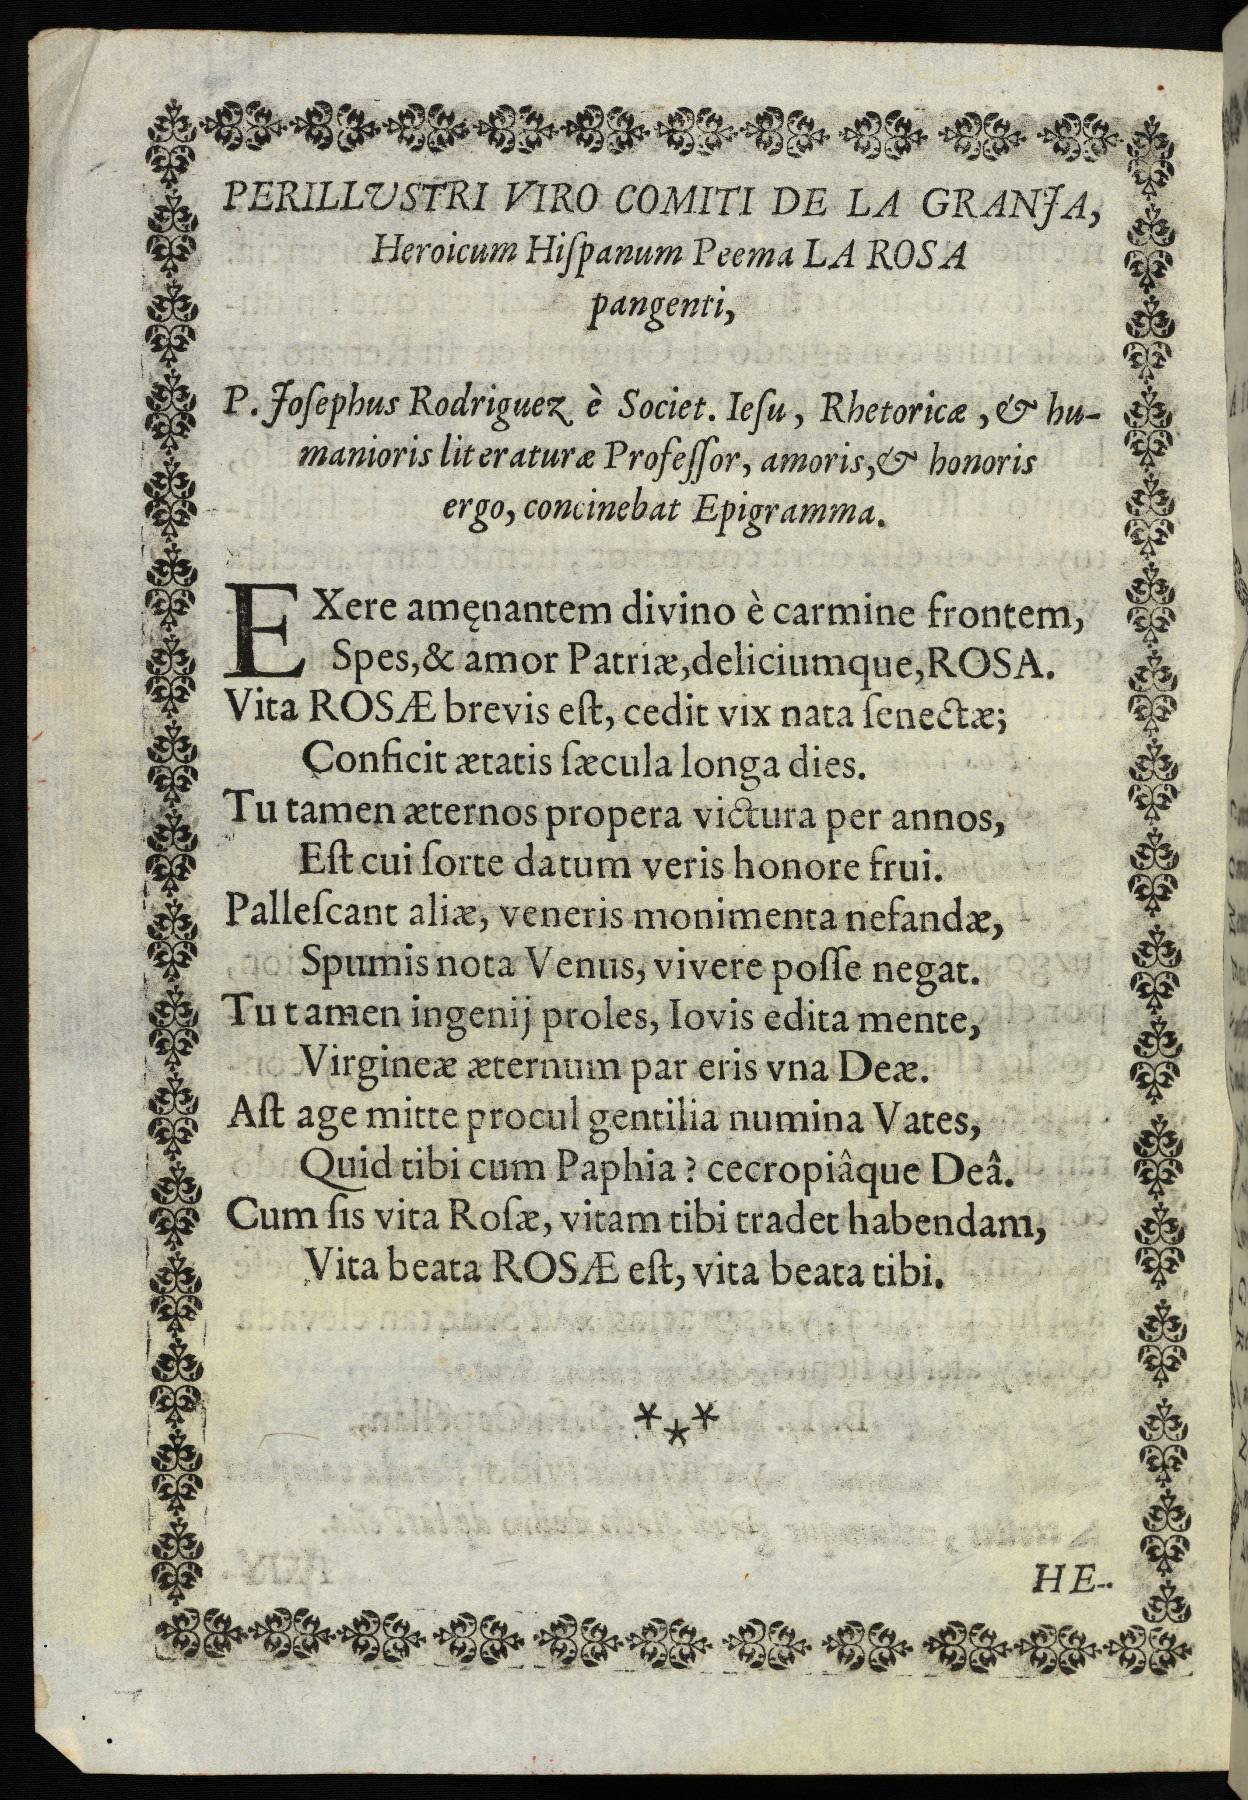 PERILLVSTRI VIRO COMITI DE LA GRANJA,
Heroicum Hiſpanum Peema LA ROSA
pangenti,
P. Joſephus Rodriguez è Societ. Ieſu, Rhetoricæ, & hu-
manioris literaturæ Profeſſor, amoris, & honoris
ergo, concinebat Epigramma.
EXere amęnantem divino è carmine frontem,
Spes, & amor Patriæ, deliciumque, ROSA.
Vita ROSÆ brevis eſt, cedit vix nata ſenectæ;
Conficit ætatis ſæcula longa dies.
Tu tamen æternos propera victura per annos,
Eſt cui ſorte datum veris honore frui.
Palleſcant aliæ, veneris monimenta nefandæ,
Spumis nota Venus, vivere poſſe negat.
Tu tamen ingenij proles, Iovis edita mente,
Virgineæ æternum par eris vna Deæ.
Aſt age mitte procul gentilia numina Vates,
Quid tibi cum Paphia? cecropiâque Deâ.
Cum ſis vita Roſæ, vitam tibi tradet habendam,
Vita beata ROSÆ eſt, vita beata tibi.
***
HE-